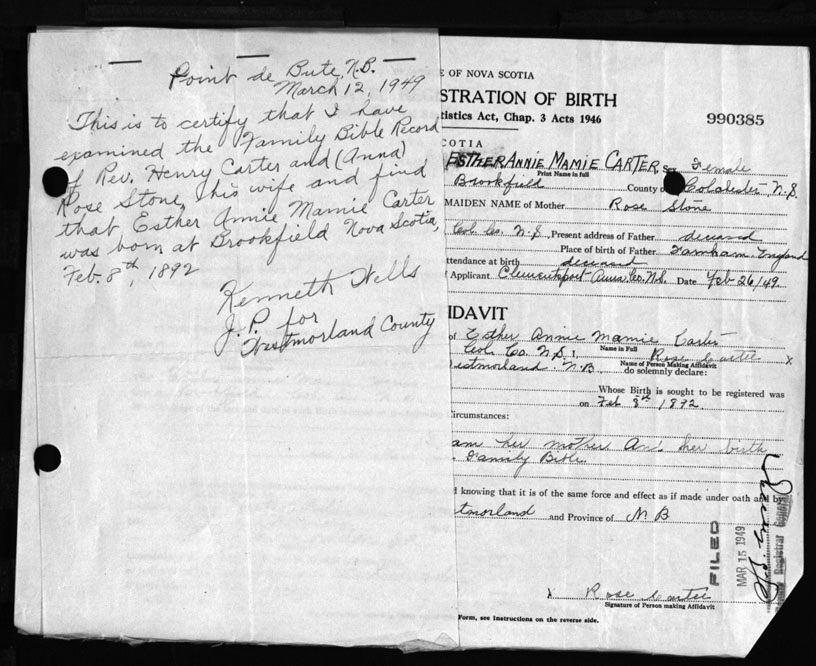 Point de Bute, N.B.
March 12, 1949
This is to certify that I have
examined the Family Bible Record
of Rev. Henry Carter and (Anna)
Rose Stone, his wife and find
that Esther Annie Mamie Carter
was born at Brookfield Nova Scotia,
Feb. 8th, 1892
Kenneth Wells
J. P. for
Westmorland County
E OF NOVA SCOTIA
STRATION OF BIRTH
tistics Act, Chap. 3 Acts 1946
990385
COTIA
ESTHER ANNIE MAMIE CARTER Sex Female
Print Name in full
Brookfield County of Colchester, N.S.
MAIDEN NAME of Mother Rose Stone
Col. Co. N.S., Present address of Father deceased
Place of birth of Father Farnham, England
ttendance at birth deceased
Applicant Clementsport Anna. Co. N.S. Date Feb 26/49
FIDAVIT
of Esther Annie Mamie Carter
Name in Full
Col. Co. N.S. I, Rose Carter X
Name of Person Making Affidavit
estmorland. N.B. do solemnly declare:
Whose Birth is sought to be registered was
on Feb 8th 1892.
ircumstances:
am her mother her birth
Family Bible.
d knowing that it is of the same force and effect as if made under oath and by
tmorland and Province of N B
FILED
MAR 15 1949
Registrar General
X Rose Carter
Signature of Person making Affidavit
Form, see Instructions on the reverse side.